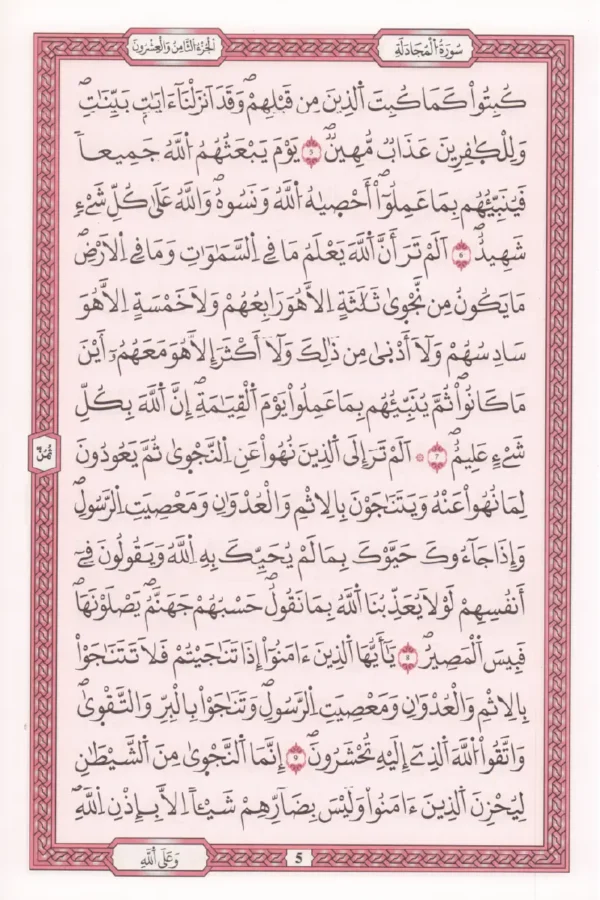 سُورَةُ الْمُجَادَلَةِ
الْجُزْءُ الثَّامِنُ وَالْعِشْرُونَ
كُبِتُواْ كَمَا كُبِتَ اَلذِينَ مِن قَبْلِهِمْ وَقَدَ اَنزَلْنَا ءَايَٰتِۢ بَيِّنَٰتٖ
وَلِلْكٰفِرِينَ عَذَابٞ مُّهِينٞ 5 يَوْمَ يَبْعَثُهُمُ اُللَّهُ جَمِيعاٗ
فَيُنَبِّئُهُم بِمَا عَمِلُوٓاْ أَحْصٰيهُ اُللَّهُ وَنَسُوهُ وَاللَّهُ عَلَىٰ كُلِّ شَےْءٖ
شَهِيدٌ 6 اَلَمْ تَرَ أَنَّ اَللَّهَ يَعْلَمُ مَا فِے اِلسَّمَٰوَٰتِ وَمَا فِے اِلَارْضِ
مَا يَكُونُ مِن نَّجْوىٰ ثَلَٰثَةٍ اِلَّا هُوَ رَابِعُهُمْ وَلَا خَمْسَةٍ اِلَّا هُوَ
سَادِسُهُمْ وَلَآ أَدْنىٰ مِن ذَٰلِكَ وَلَآ أَكْثَرَ إِلَّا هُوَ مَعَهُمُۥٓ أَيْنَ
مَا كَانُواْ ثُمَّ يُنَبِّئُهُم بِمَا عَمِلُواْ يَوْمَ اَلْقِيَٰمَةِ إِنَّ اَللَّهَ بِكُلِّ
شَےْءٍ عَلِيمٌ 7 اَلَمْ تَرَ إِلَى اَلذِينَ نُهُواْ عَنِ اِلنَّجْوىٰ ثُمَّ يَعُودُونَ
ثمُن
لِمَا نُهُواْ عَنْهُ وَيَتَنَٰجَوْنَ بِالِاثْمِ وَالْعُدْوَٰنِ وَمَعْصِيَتِ اِلرَّسُولِ
وَإِذَا جَآءُوكَ حَيَّوْكَ بِمَا لَمْ يُحَيِّكَ بِهِ اِللَّهُ وَيَقُولُونَ فِےٓ
أَنفُسِهِمْ لَوْلَا يُعَذِّبُنَا اَللَّهُ بِمَا نَقُولُ حَسْبُهُمْ جَهَنَّمُ يَصْلَوْنَهَا
فَبِيسَ اَلْمَصِيرُ 8 يَٰٓأَيُّهَا اَلذِينَ ءَامَنُوٓاْ إِذَا تَنَٰجَيْتُمْ فَلَا تَتَنَٰجَوْاْ
بِالِاثْمِ وَالْعُدْوَٰنِ وَمَعْصِيَتِ اِلرَّسُولِ وَتَنَٰجَوْاْ بِالْبِرِّ وَالتَّقْوىٰ
وَاتَّقُواْ اُللَّهَ اَلذِےٓ إِلَيْهِ تُحْشَرُونَ 9 إِنَّمَا اَلنَّجْوىٰ مِنَ اَلشَّيْطَٰنِ
لِيُحْزِنَ اَلذِينَ ءَامَنُواْ وَلَيْسَ بِضَآرِّهِمْ شَيْـٔاً اِلَّا بِإِذْنِ اِللَّهِ
5
وَعَلَى اَللَّهِ